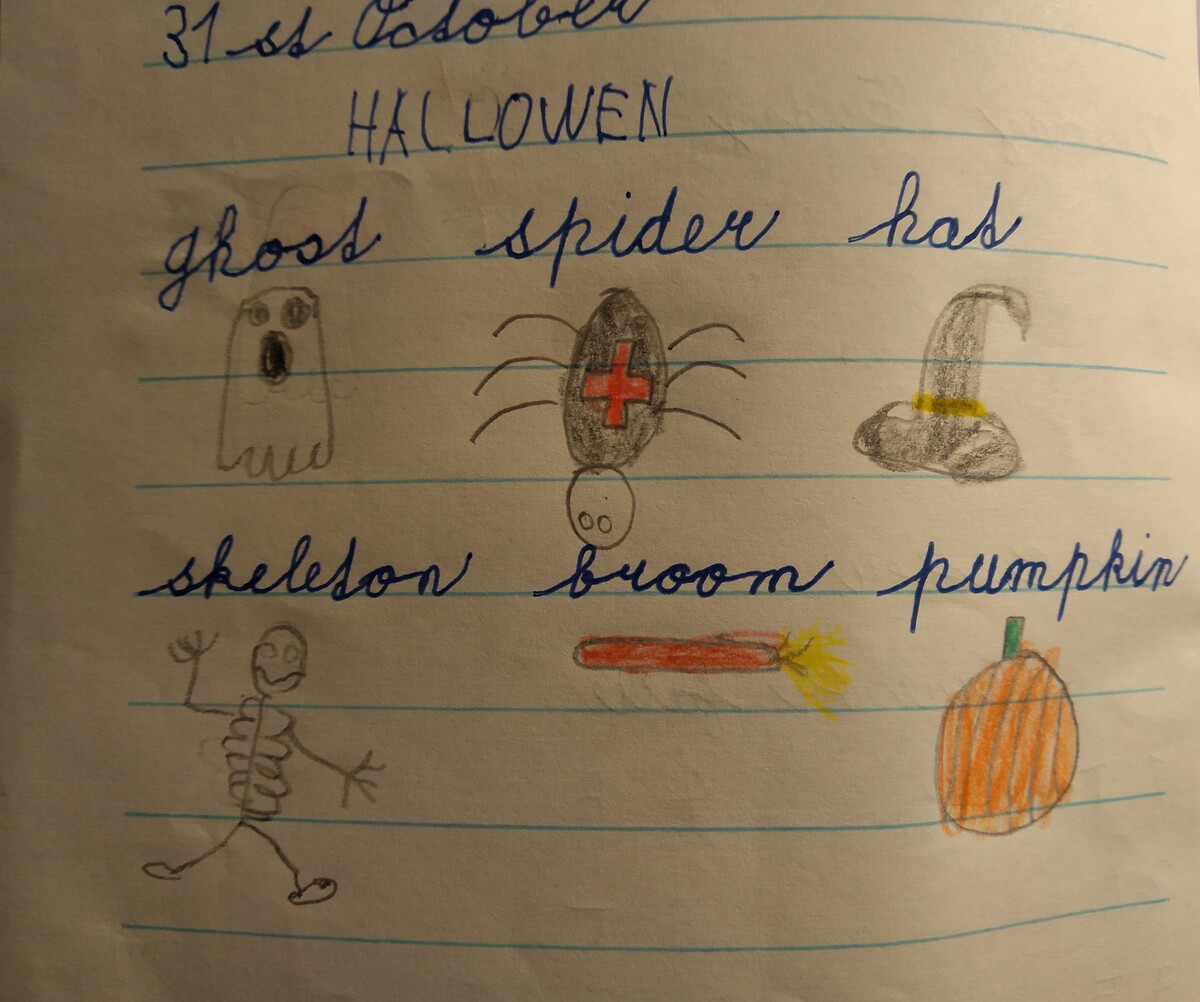 31st October
HALLOWEN
ghost spider hat
skeleton broom pumpkin